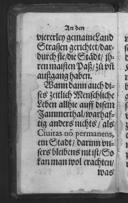 An den
viererley gemain Land
Strassen gerichtet/ dar-
durch sie/ die Städt/ jh-
ren maisten Paß/ zu vñ
außgang haben.
Wann dann auch di-
ses zeitlich Menschliche
Leben allhie auff disem
Jammerthal/ warhaf-
tig anders nichts/ als
Ciuitas nō permanens,
ein Stadt/ darinn vn-
sers bleibens nit ist/ So
kan man wol erachten/
was